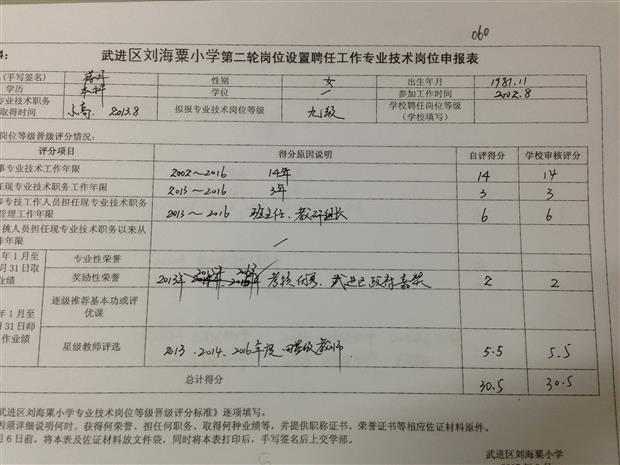 060
4: 武进区刘海粟小学第二轮岗位设置聘任工作专业技术岗位申报表
(手写签名) 性别 女 出生年月 1981.11
学历 本科 学位 / 参加工作时间 2002.8
专业技术职务取得时间 2013.8 拟报专业技术岗位等级 九级 学校聘任岗位等级(学校填写)
岗位等级晋级评分情况:
评分项目 得分原因说明 自评得分 学校审核评分
事专业技术工作年限 2002~2016 14年 14 14
任现专业技术职务工作年限 2013~2016 3年 3 3
事专技工作人员担任现专业技术职务
管理工作年限 2013~2016 班主任、教研组长 6 6
挑人员担任现专业技术职务以来从
年限 /
年1月至 专业性荣誉
月31日取
业绩 奖励性荣誉 2013年 考核优秀、武进区政府嘉奖 2 2
年1月至 逐级推荐基本功或评优课
月31日师
作业绩 星级教师评选 2013、2014、2016年度 四星级教师 5.5 5.5
总计得分 30.5 30.5
武进区刘海粟小学专业技术岗位等级晋级评分标准》逐项填写。
因须详细说明何时、获得何荣誉、担任何职务、取得何种业绩等,并提供职称证书、荣誉证书等相应佐证材料原件。
月6日前,将本表及佐证材料放文件袋,同时将本表打印后,手写签名后上交学部。
武进区刘海粟小学